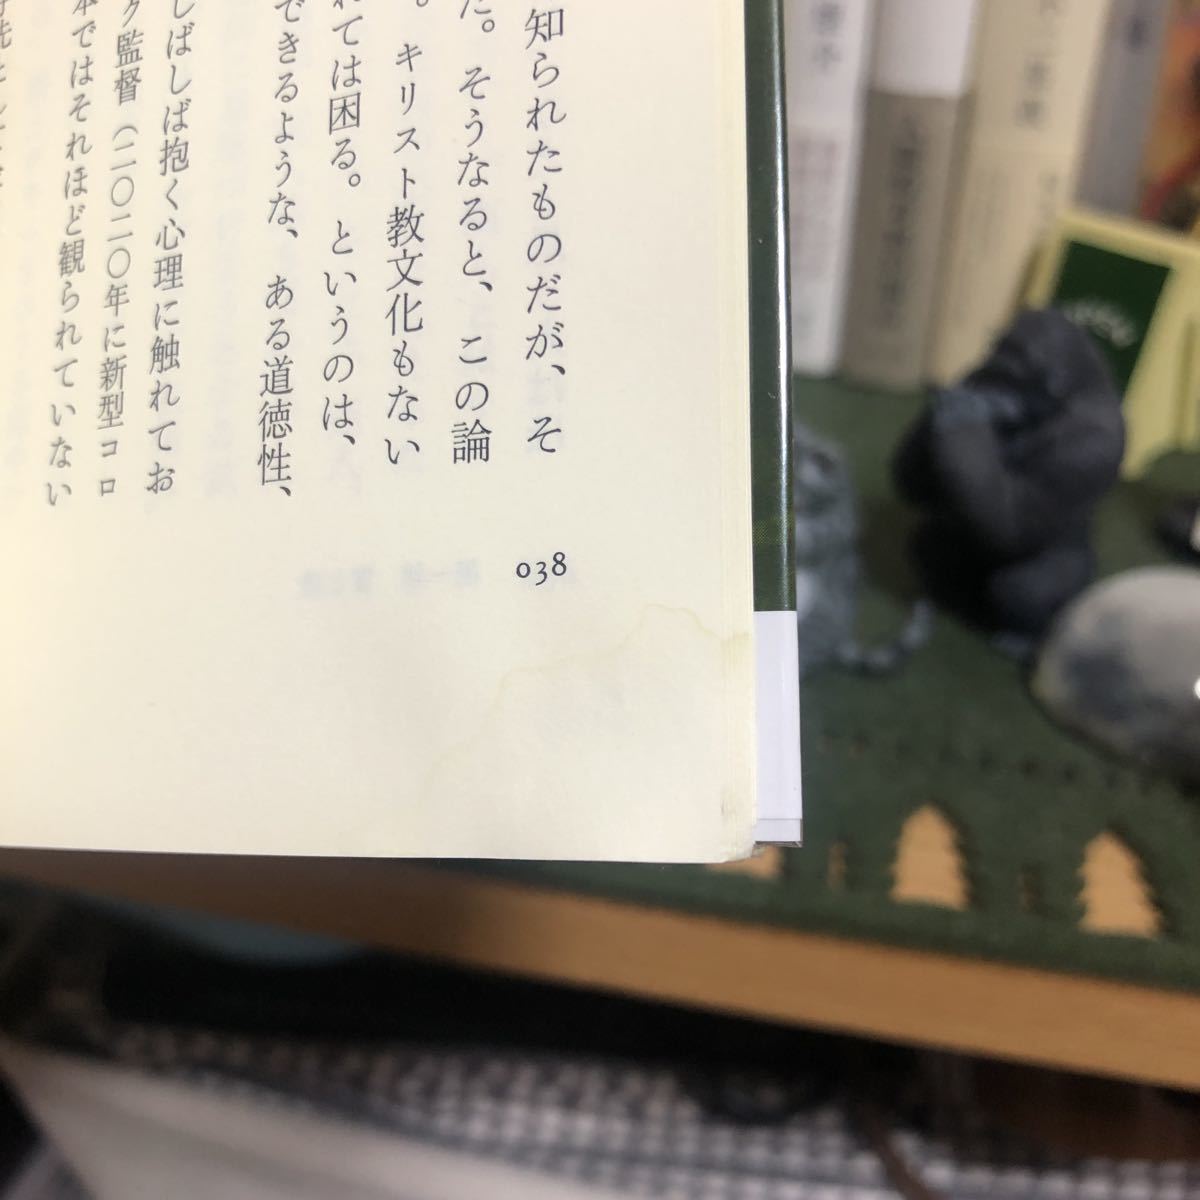 知られたものだが、そ
た。そうなると、この論
。キリスト教文化もない
れては困る。というのは、
できるような、ある道徳性、
しばしば抱く心理に触れてお
ク監督（二〇二〇年に新型コロ
本ではそれほど観られていない
038